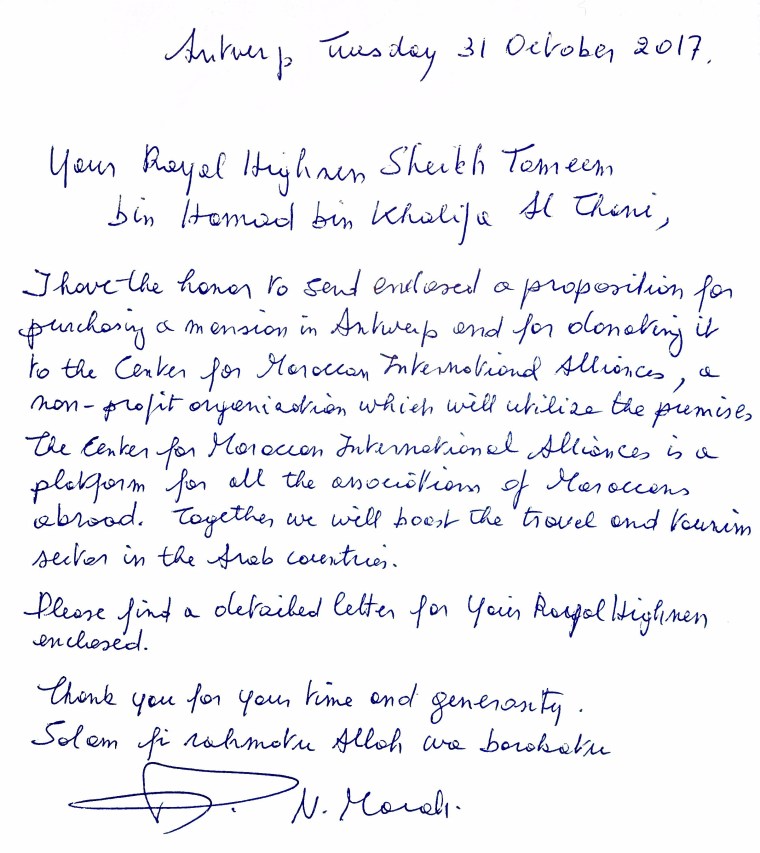 Antwerp Tuesday 31 October 2017.
Your Royal Highness Sheikh Tameem
bin Hamad bin Khalifa Al Thani,
I have the honor to send enclosed a proposition for
purchasing a mansion in Antwerp and for donating it
to the Center for Moroccan International Alliances, a
non-profit organization which will utilize the premises.
The Center for Moroccan International Alliances is a
platform for all the associations of Moroccans
abroad. Together we will boost the travel and tourism
sector in the Arab countries.
Please find a detailed letter for Your Royal Highness
enclosed.
Thank you for your time and generosity.
Salam fi rahmatu Allah wa barakatu
N.